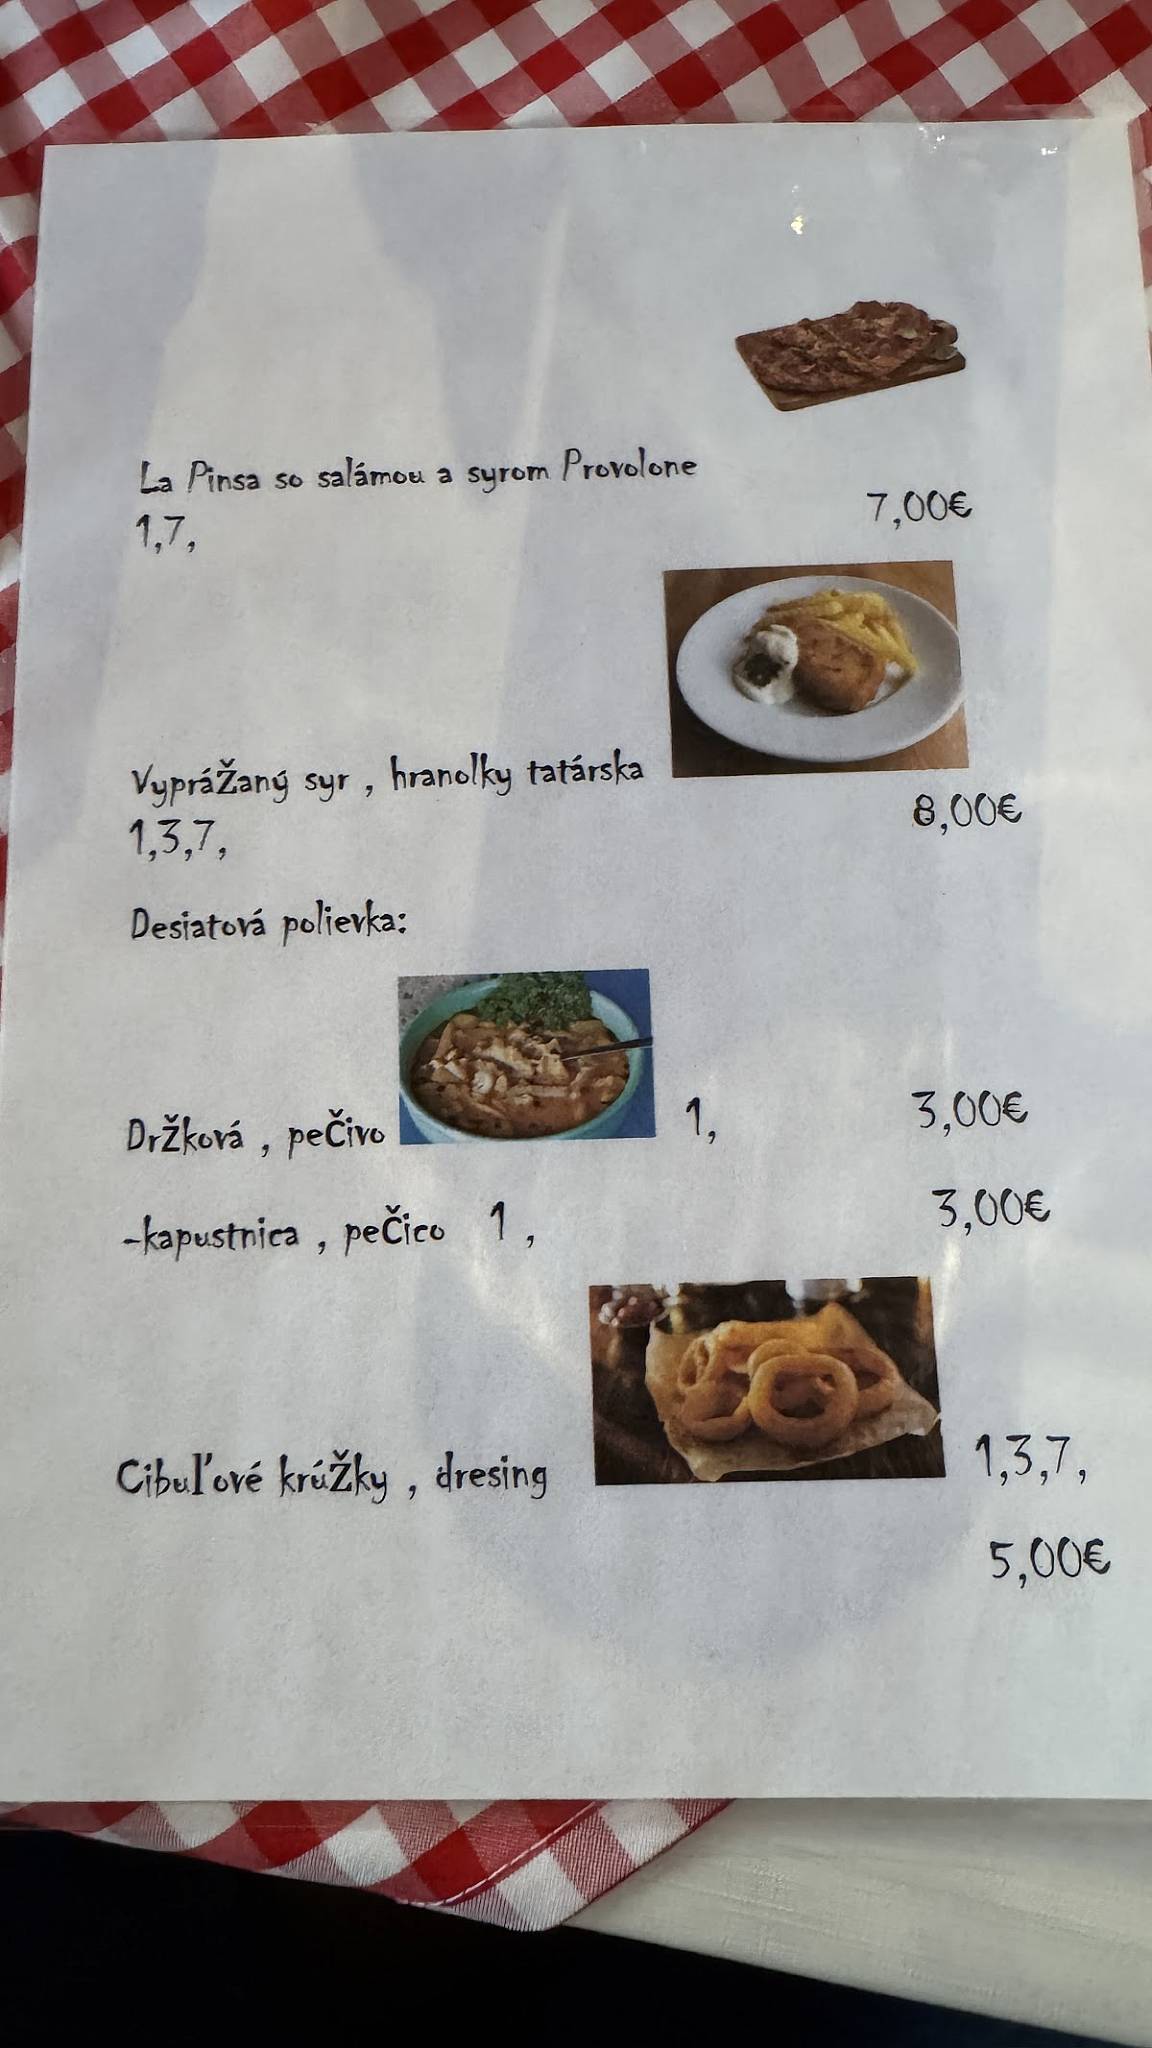 La Pinsa so salámou a syrom Provolone
1,7,
7,00€
Vyprážaný syr , hranolky tatárska
8,00€
1,3,7,
Desiatová polievka:
Držková , pečivo 1, 3,00€
-kapustnica , pečico 1 , 3,00€
Cibuľové krúžky , dresing 1,3,7,
5,00€